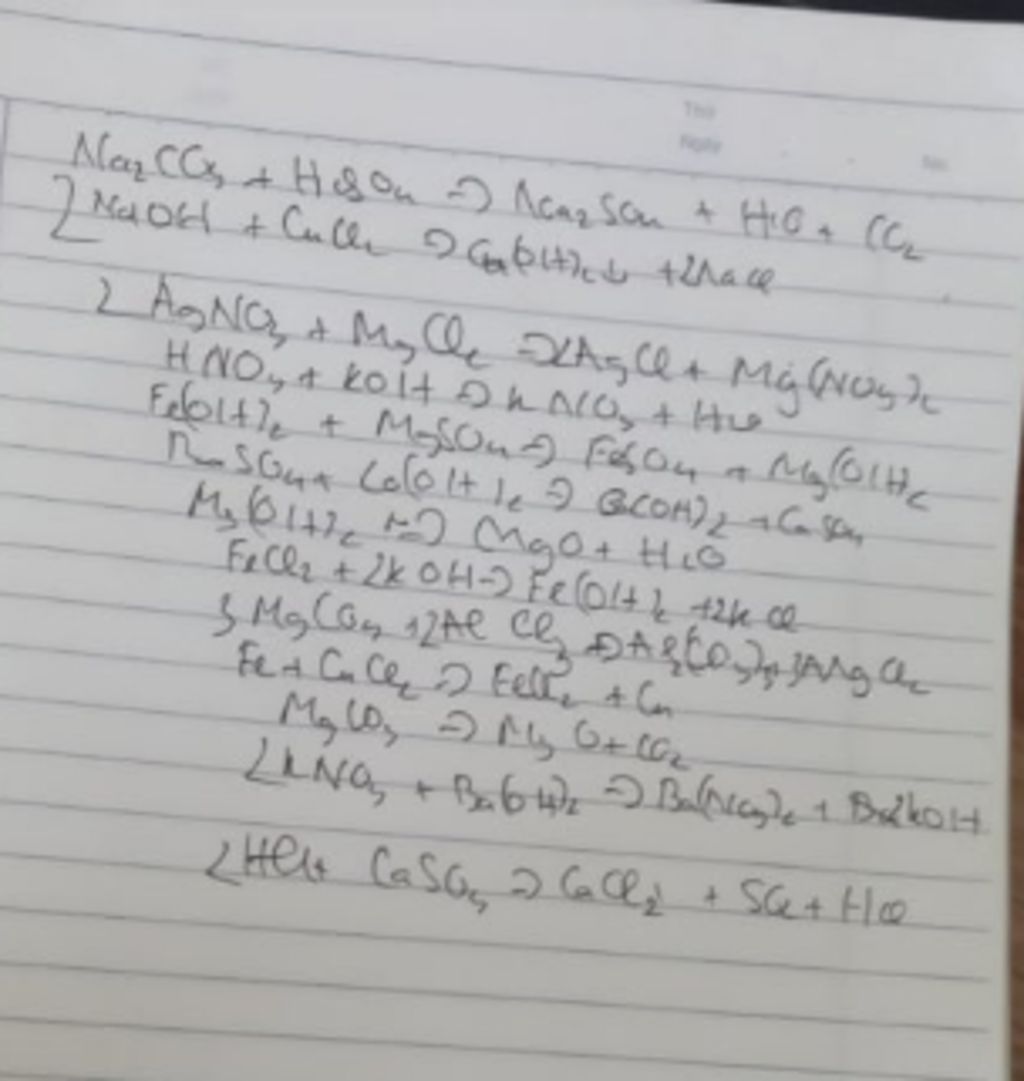 Na₂CO₃ + H₂SO₄ => Na₂SO₄ + H₂O + CO₂
2NaOH + CuCl₂ => Cu(OH)₂↓ + 2NaCl
2 AgNO₃ + MgCl₂ => 2AgCl + Mg(NO₃)₂
HNO₃ + KOH => KNO₃ + H₂O
Fe(OH)₂ + MgSO₄ => FeSO₄ + Mg(OH)₂
SO₄ + (OH)₂ => (OH)₂ + SO₄
Mg(OH)₂ => MgO + H₂O
FeCl₂ + 2KOH -> Fe(OH)₂ + 2KCl
3MgCO₃ + 2AlCl₃ => Al₂(CO₃)₃ + 3MgCl₂
Fe + CuCl₂ => FeCl₂ + Cu
MgCO₃ => MgO + CO₂
2KNO₃ + Ba(OH)₂ => Ba(NO₃)₂ + 2KOH
2HCl + CaSO₃ => CaCl₂ + SO₂ + H₂O